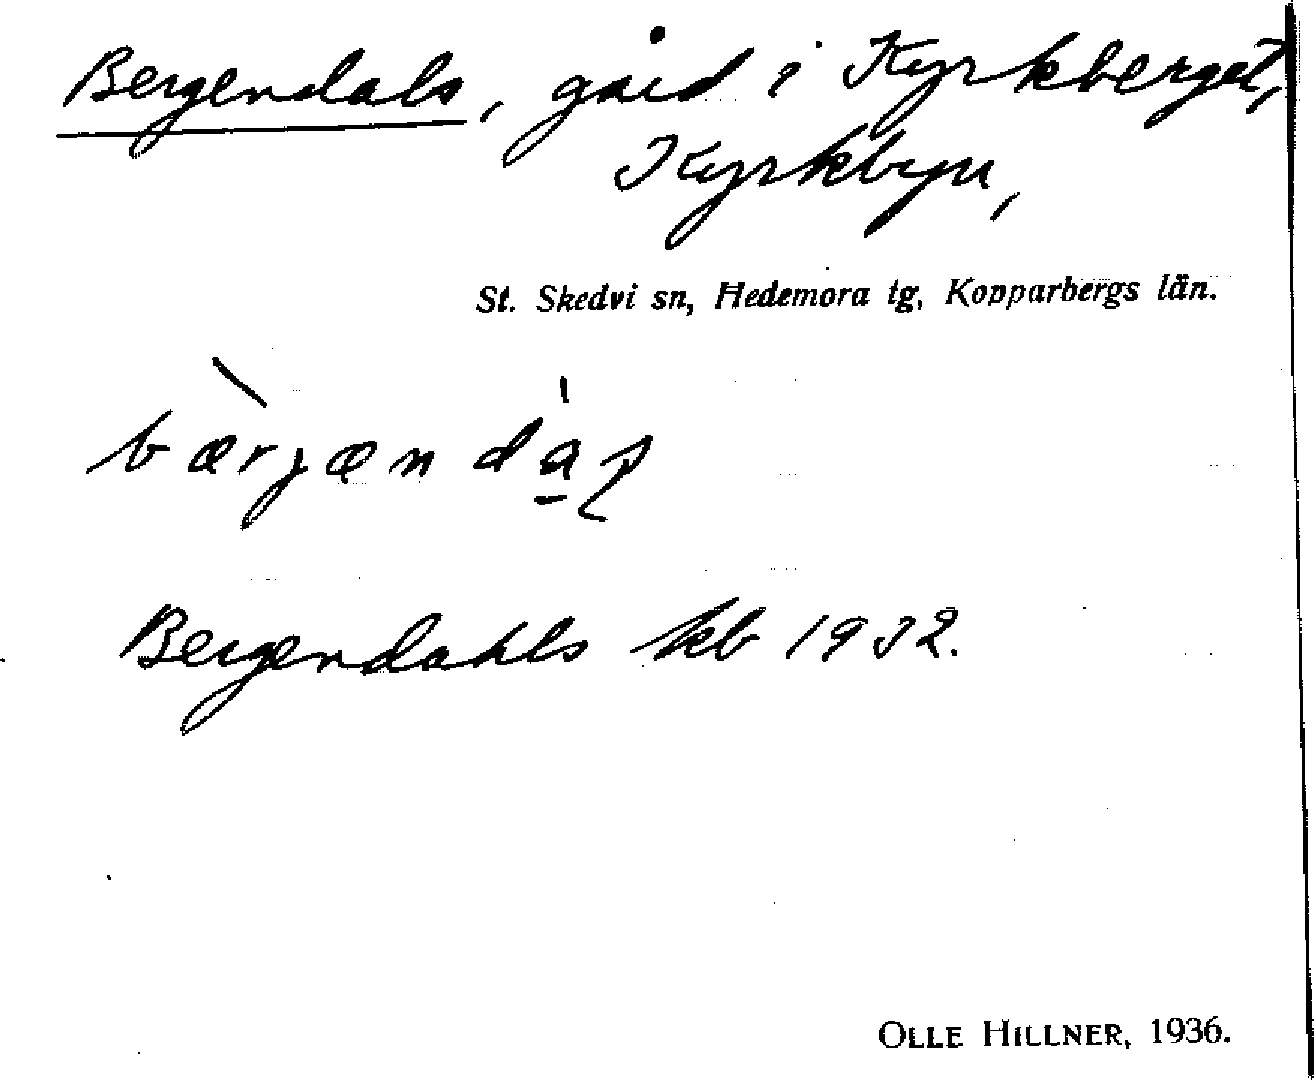 Bergendals, gård i Kyrkberget,
Kyrkbyn,
St. Skedvi sn, Hedemora tg, Kopparbergs län.
bærjænda̱ʂ
Bergendahls kb 1932.
OLLE HILLNER, 1936.